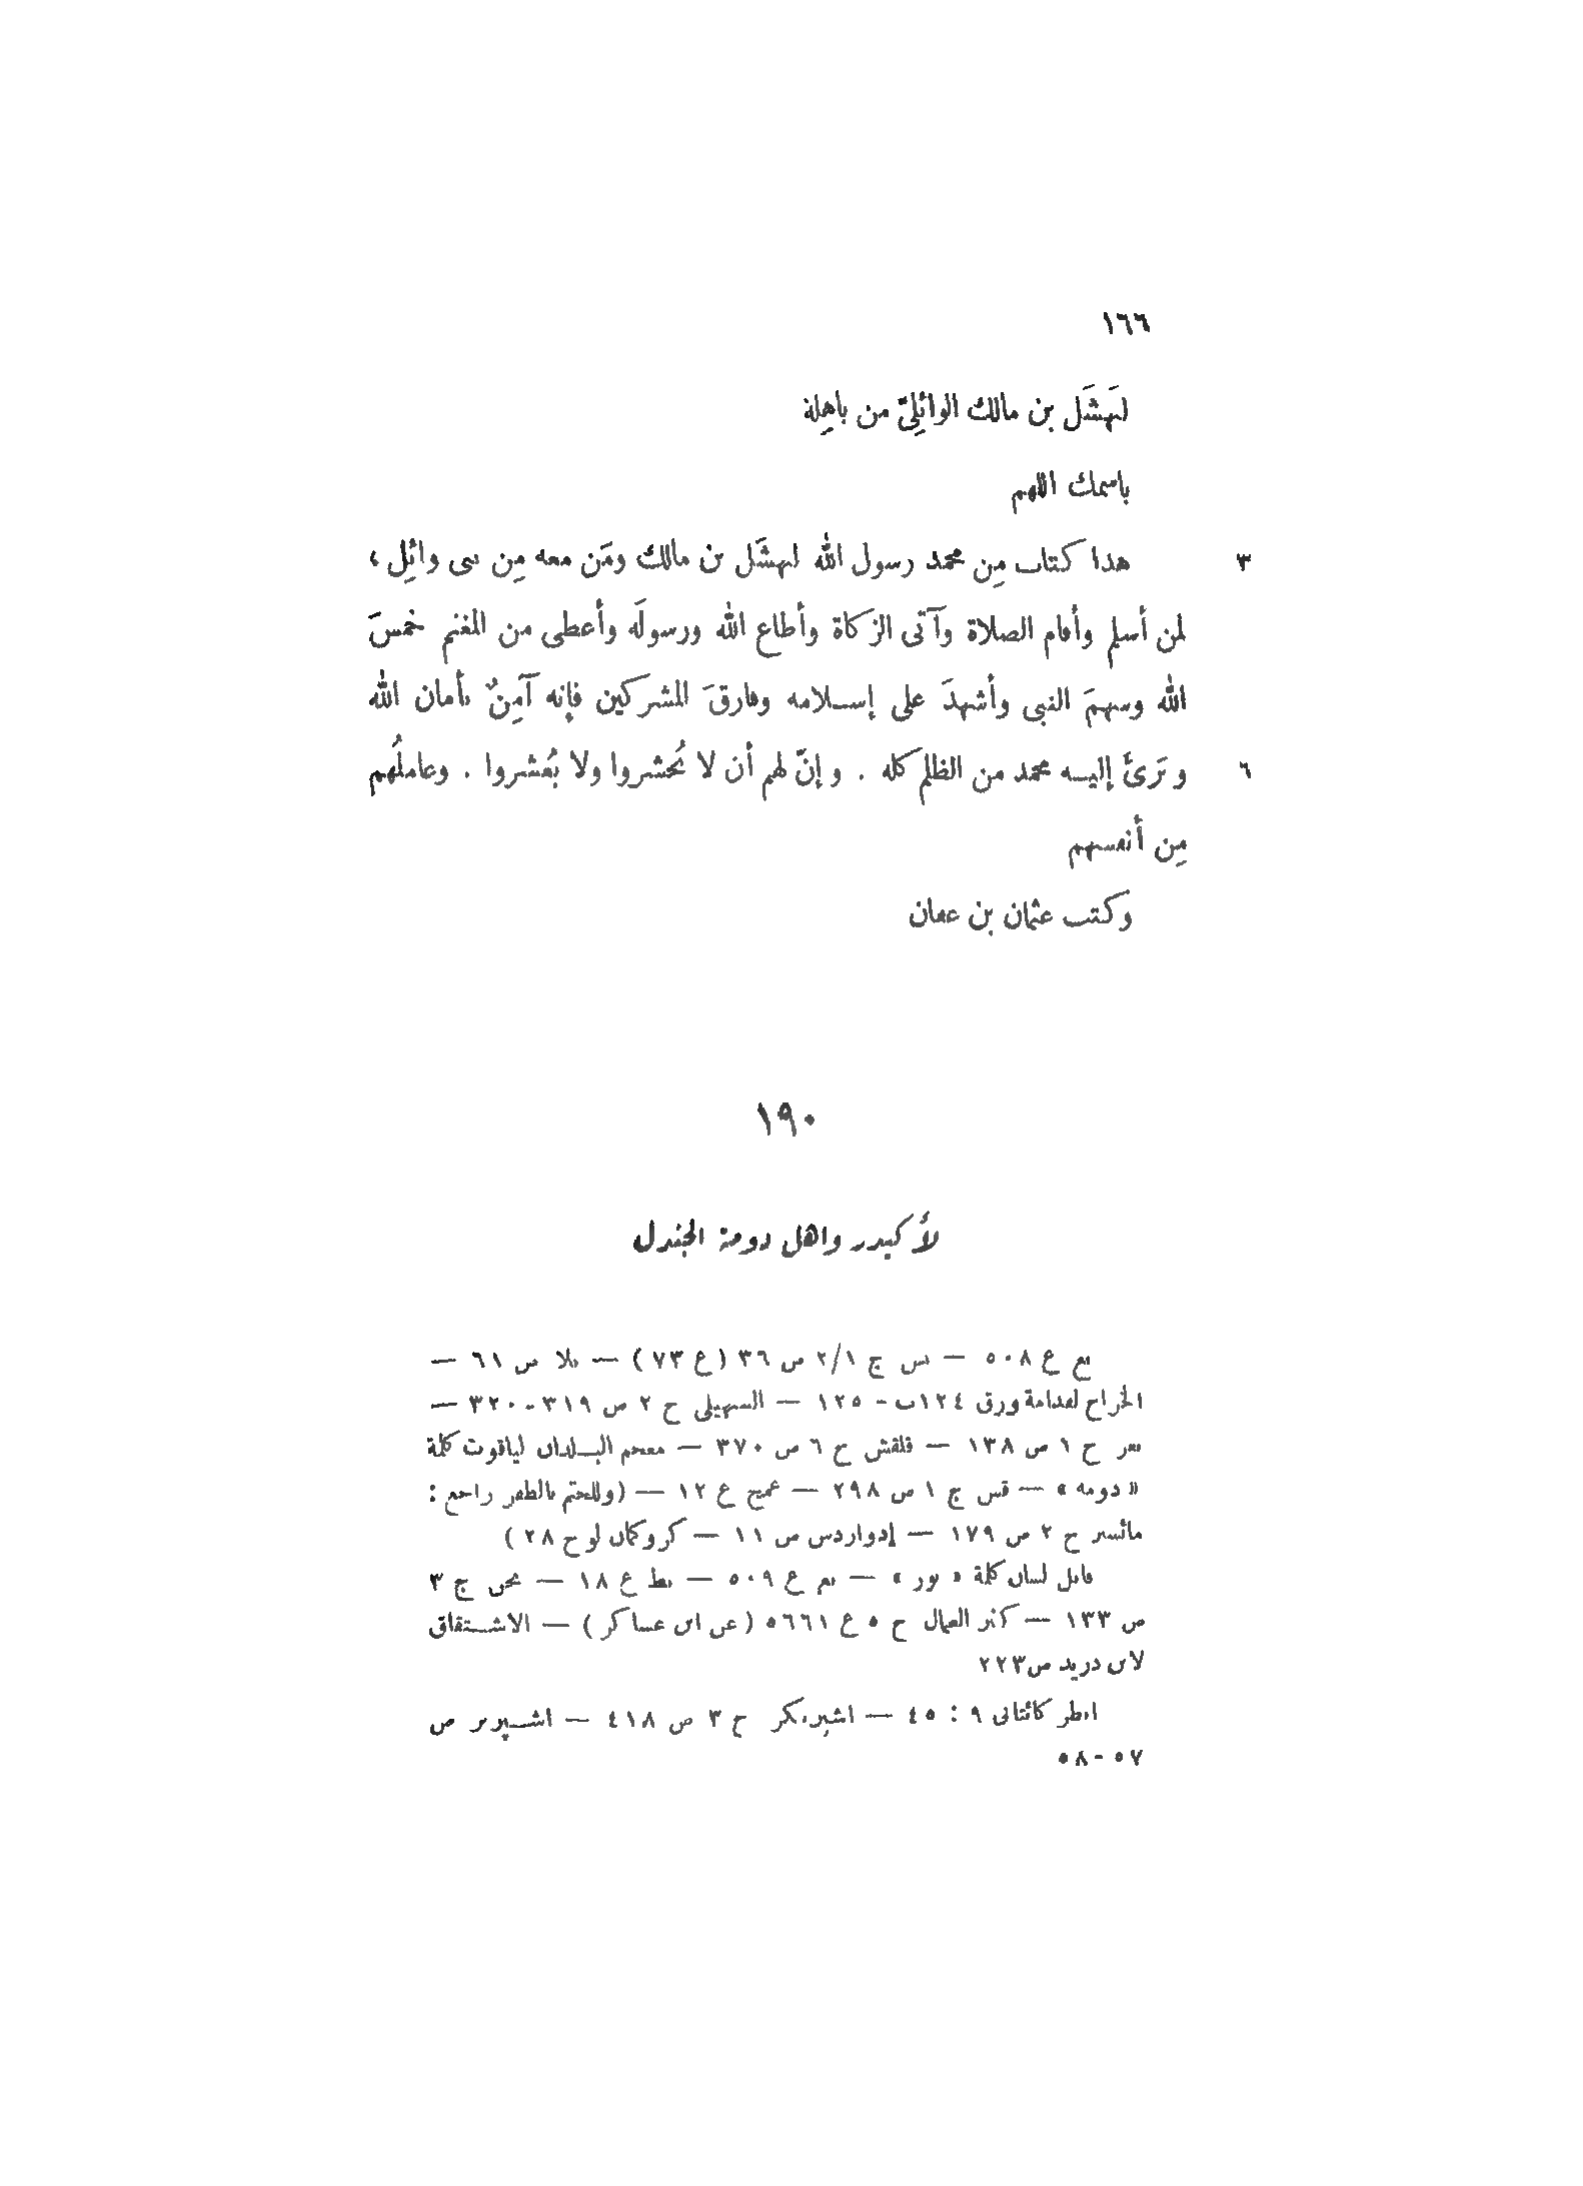 ١٦٦
لنَهشَل بن مالك الوائِلىّ من باهِلة
باسمك اللهم
٣ هذا كتاب مِن محمد رسول الله لنهشَل بن مالك ومَن معه مِن بنى وائِل ،
لمن أسلم وأقام الصلاة وآتى الزكاة وأطاع الله ورسولَه وأعطى من المغنم خمسَ
الله وسهمَ النبى وأشهدَ على إسلامه وفارقَ المشركين فإنه آمِنٌ بأمان الله
٦ وبَرئَ إليه محمد من الظلم كله . وإنّ لهم أن لا يُحشروا ولا يُعشروا . وعاملُهم
مِن أنفسهم
وكتب عثمان بن عفان
١٩٠
لأكيدر واهل دومة الجندل
بع ع ٥٠٨ — بس ج ٢/١ ص ٣٦ (ع ٧٣) — بلا ص ٦١ —
الخراج لقدامة ورق ١٢٤ب - ١٢٥ — السهيلى ج ٢ ص ٣١٩-٣٢٠ —
ج ١ ص ١٣٨ — قلقش ج ٦ ص ٣٧٠ — معجم البلدان لياقوت كلمة
« دومه » — قس ج ١ ص ٢٩٨ — عميح ع ١٢ — (وللختم بالظفر راجع :
مائسنر ج ٢ ص ١٧٩ — إدواردس ص ١١ — كروكمان لوح ٢٨ )
قابل لسان كلمة « بور » — بم ع ٥٠٩ — بط ع ١٨ — ج ٣
ص ١٣٣ — كنز العمال ج ٥ ع ٥٦٦١ (عن ابن عساكر) — الاشتقاق
لابن دريد ص٢٢٣
انظر كائتانى ٩ : ٤٥ — اشبرنكر ج ٣ ص ٤١٨ — اشپربر ص
٥٧-٥٨